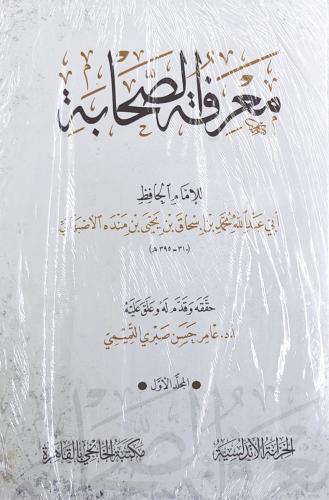 معرفة الصحابة
للإمام الحافظ
أبي عبد الله محمد بن إسحاق بن يحيى بن منده الأصبهاني
(٣١٠ - ٣٩٥ هـ)
حققه وقدم له وعلق عليه
ا.د. عامر حسن صبري التميمي
المجلد الأول
الخزانة الأندلسية
مكتبة الخانجي بالقاهرة